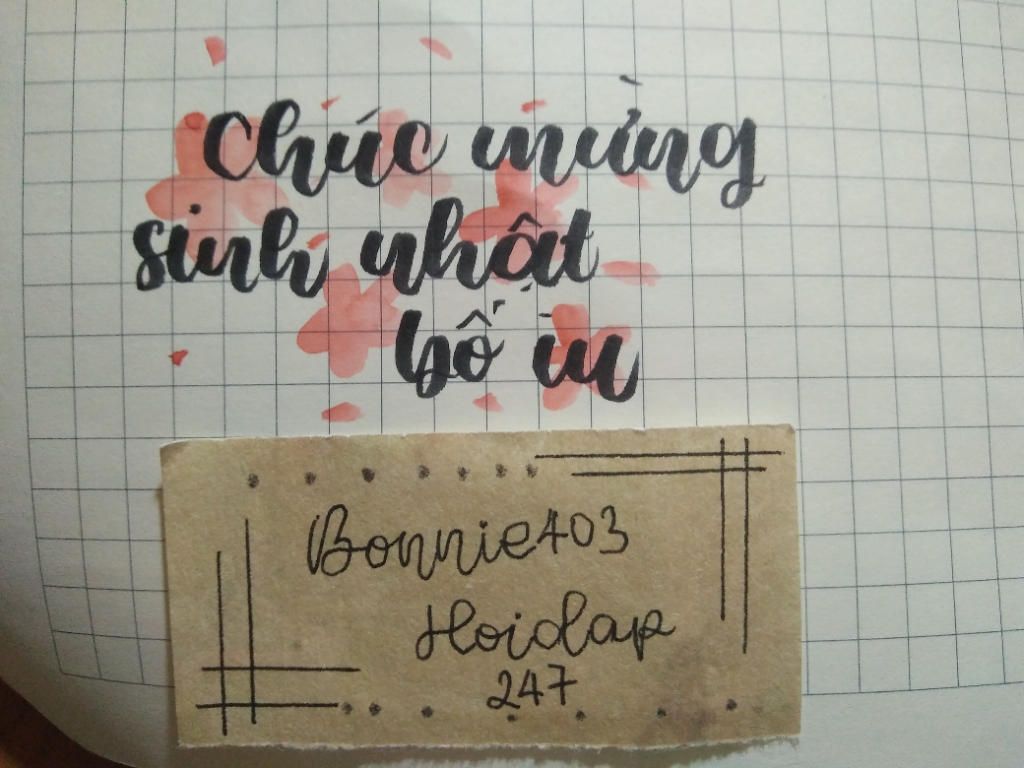 chúc mừng
sinh nhật
bố ỉn
Bonnie403
Hoidap
247